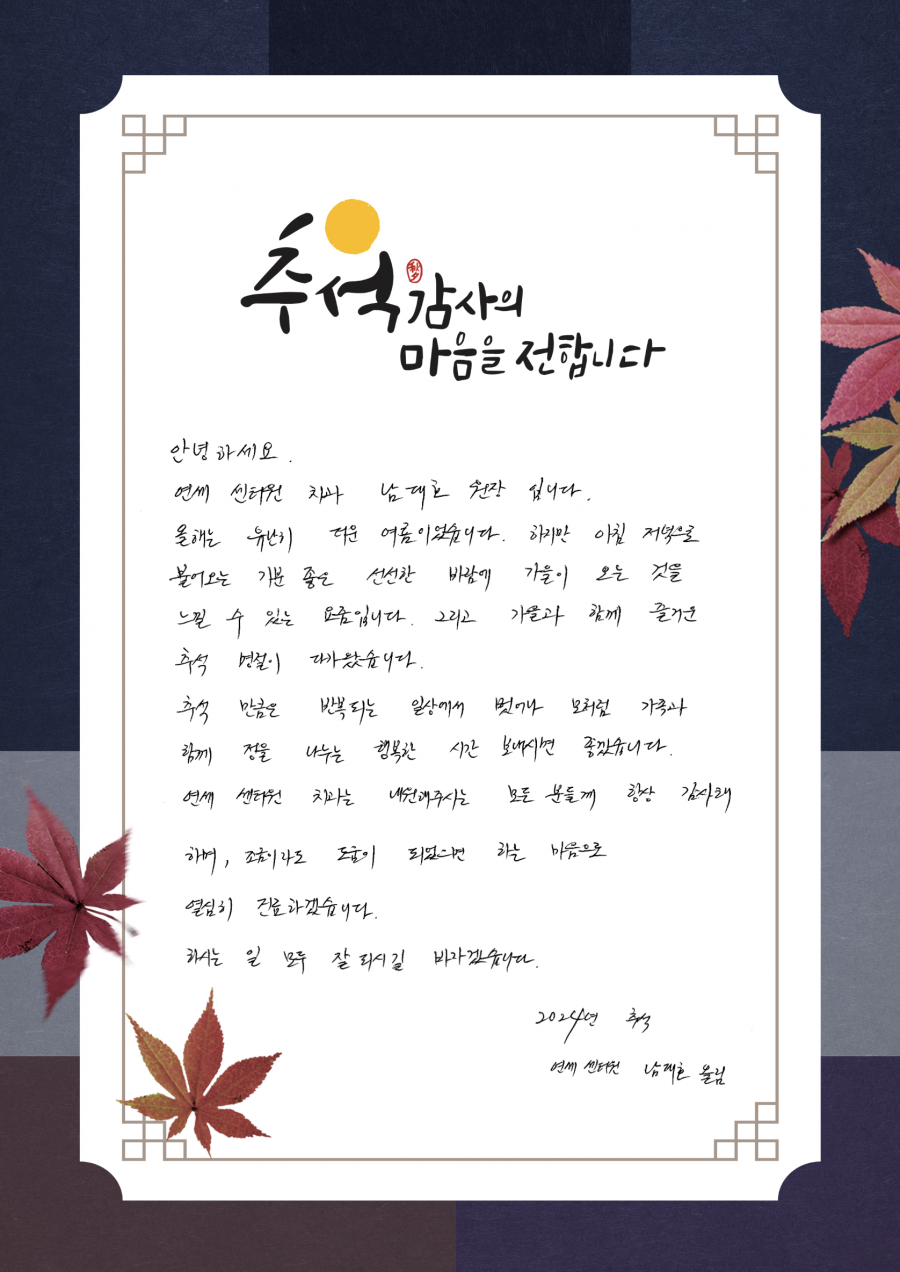 추석 감사의
秋夕
마음을 전합니다
안녕하세요.
연세 센터원 치과 남대호 원장 입니다.
올해는 유난히 더운 여름이었습니다. 하지만 아침 저녁으로
불어오는 기분 좋은 선선한 바람에 가을이 오는 것을
느낄 수 있는 요즘입니다. 그리고 가을과 함께 즐거운
추석 명절이 다가왔습니다.
추석 만큼은 반복되는 일상에서 벗어나 모처럼 가족과
함께 정을 나누는 행복한 시간 보내시면 좋겠습니다.
연세 센터원 치과는 내원해주시는 모든 분들께 항상 감사해
하며, 조금이라도 도움이 되었으면 하는 마음으로
열심히 진료하겠습니다.
하시는 일 모두 잘 되시길 바라겠습니다.
2024년 추석
연세 센터원 남대호 올림